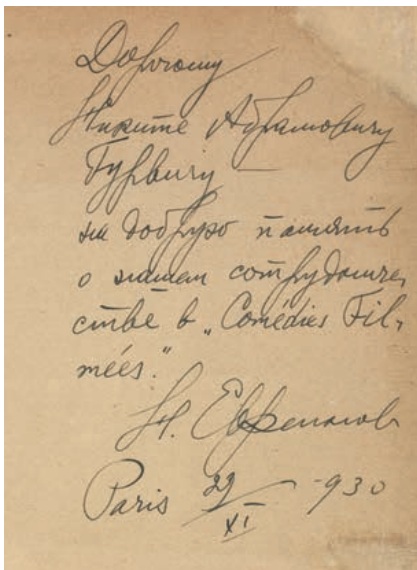 Дорогому
Никите Абрамовичу
Гурвичу —
на добрую память
о нашем сотрудниче-
стве в „Comédies Fil-
mées."
Н. Евреинов
Paris 29/XI -930